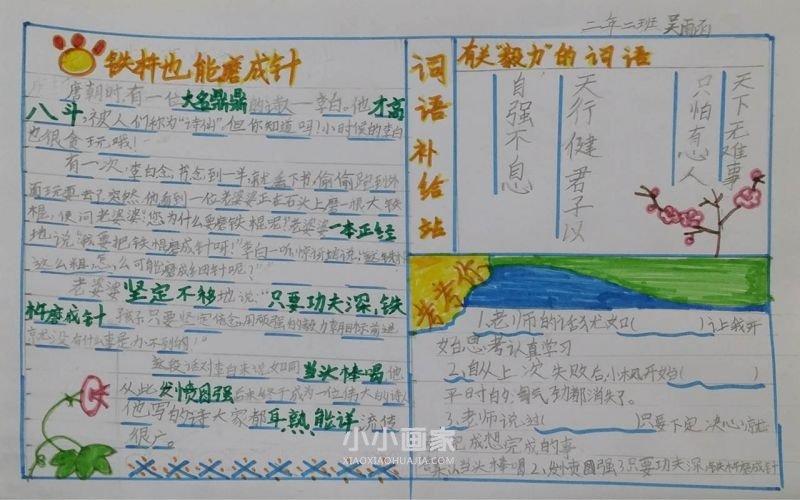 二年二班 吴雨函
铁杵也能磨成针
唐朝时,有一位大名鼎鼎的诗人—李白。他才高
八斗,被人们称为"诗仙"。但你知道吗?小时候的李白
也很贪玩哦!
有一次,李白念书念到一半,就丢下书,偷偷跑到外
面玩耍去了。突然,他看到一位老婆婆正在石头上磨一根大铁
棍,便问老婆婆:"您为什么要磨铁棍呢?"老婆婆一本正经
地说:"我要把铁棍磨成针呀!"李白一听,惊讶地说:
这么粗,怎么可能磨成细针呢?"
老婆婆坚定不移地说:"只要功夫深,铁
杵磨成针。孩子,只要坚定信念,用顽强的毅力朝目标前进,
就没有什么事是办不到的!"
这段话对李白来说如同当头棒喝,他
从此发愤图强,后来终于成为一位伟大的诗人,
他写的诗大家都耳熟能详,流传
很广。
词语补给站
有关"毅力"的词语
天下无难事
只怕有心人
天行健君子以
自强不息
考考你
1.老师的话犹如( )让我开
始思考认真学习
2.自从上次失败后,小枫开始( )
平日的
都消失了。
3.老师说过( )只要下定决心就
能完成想完成的事
当头棒喝 2、发愤图强 3、只要功夫深,铁杵磨成针
小小画家
XIAOXIAOHUAJIA.COM